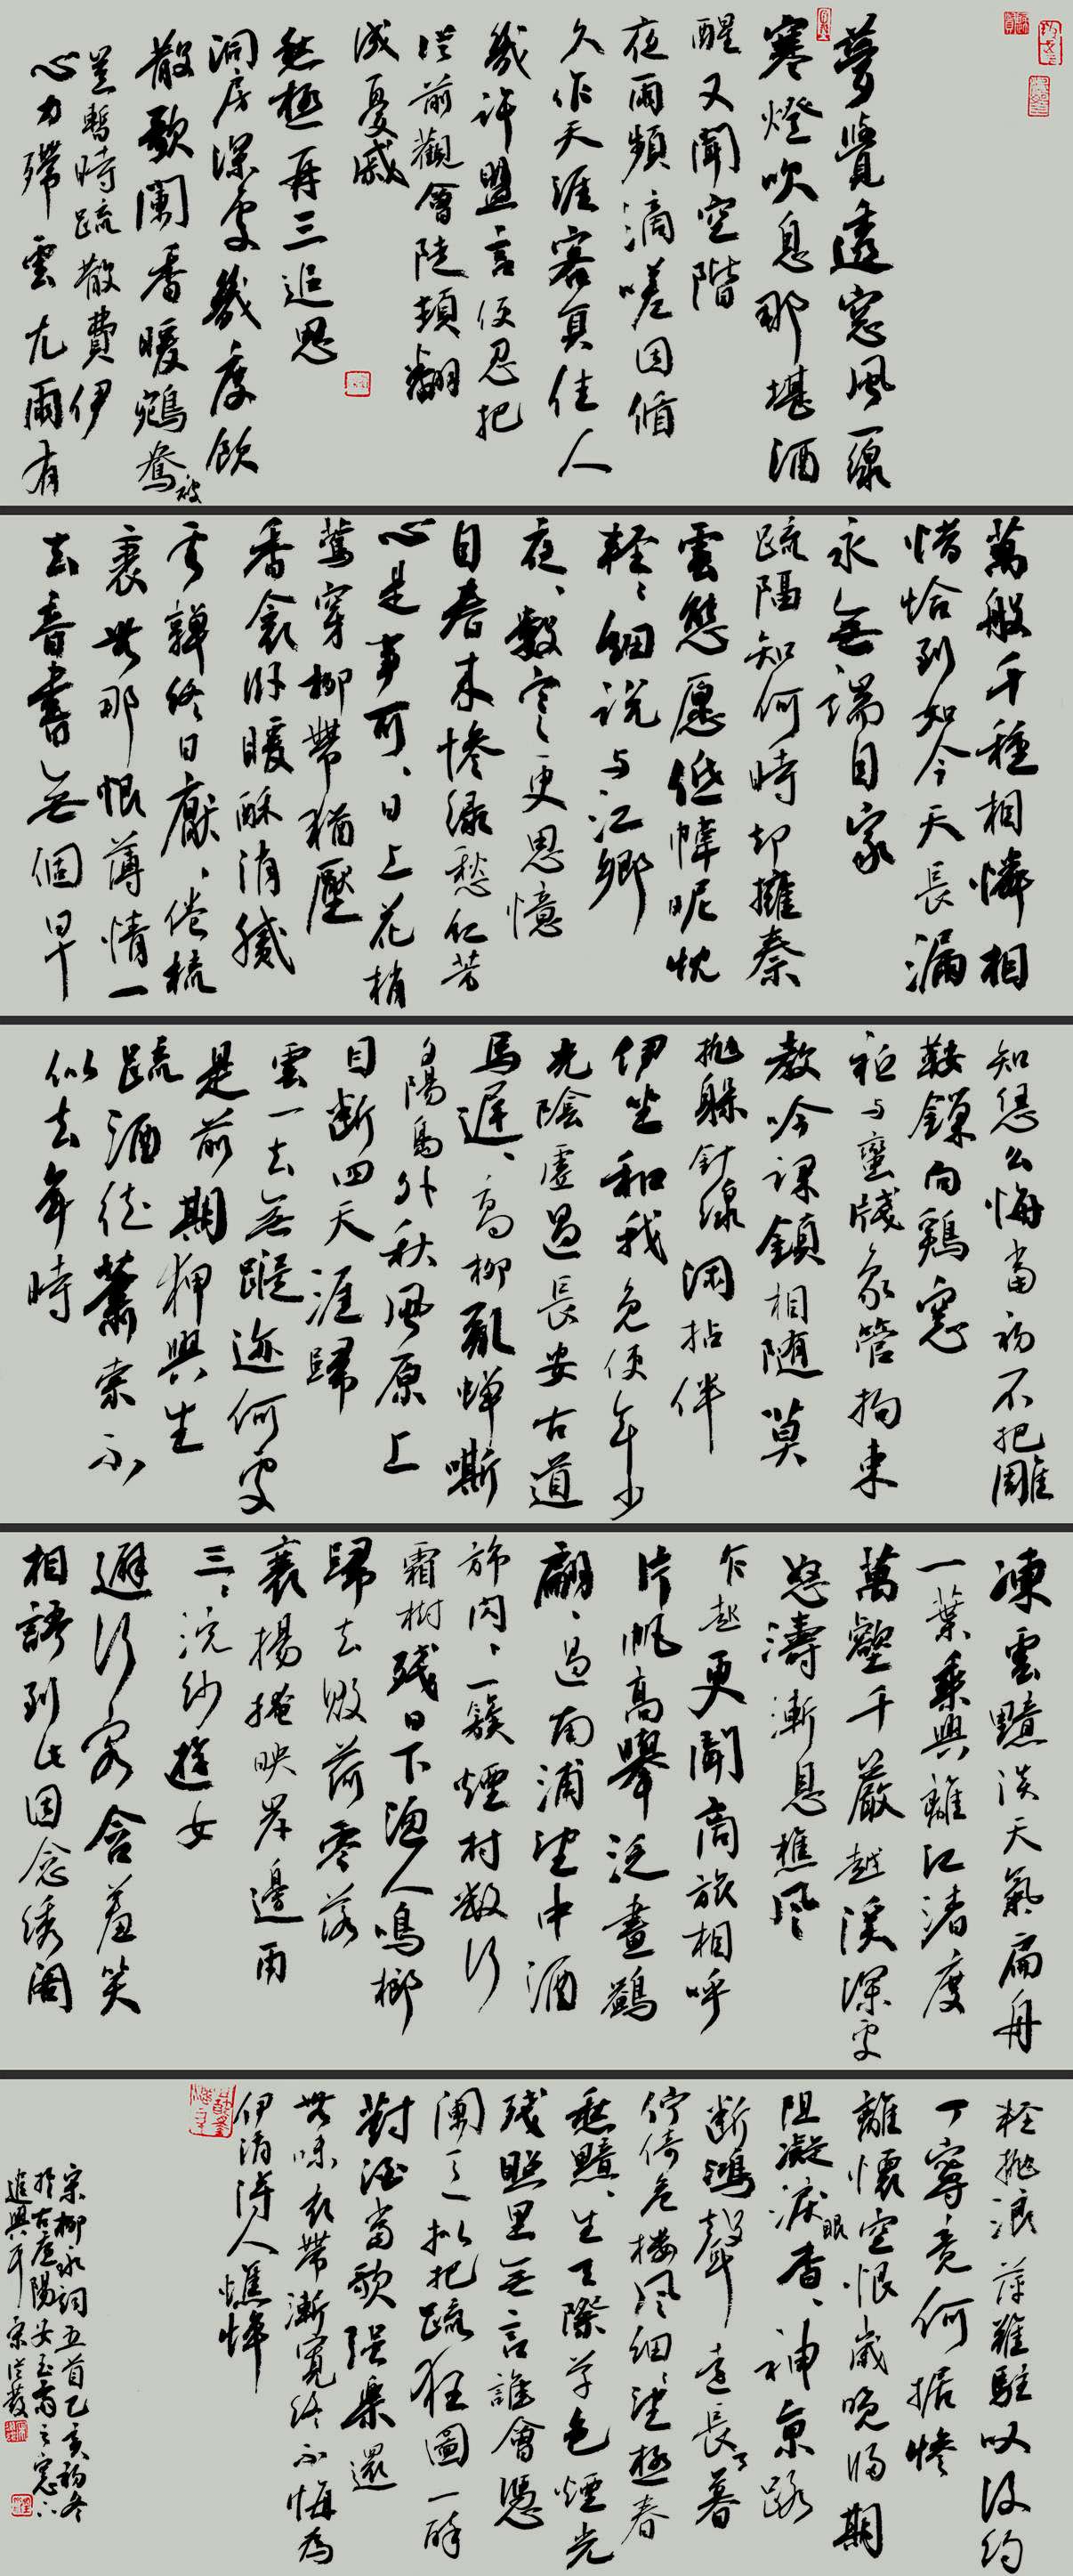 夢覺透窓風一線
寒燈吹息那堪酒
醒又聞空階
夜雨頻滴嗟因循
久作天涯客負佳人
幾許盟言便忍把
從前觀會陡頓翻
成憂戚
愁極再三追思
洞房深處幾度飲
散歌闌香暖鴛鴦被
豈暫時疏散費伊
心力殢雲尤雨有
萬般千種相憐相
惜恰到如今天長漏
永無端自家
疏隔知何時却擁秦
雲態愿低幃昵枕
輕〻細說与江鄉
夜〻數寒更思憶
自春來慘綠愁紅芳
心是事可〻日上花梢
鶯穿柳帶猶壓
香衾卧暖酥消膩
雲嚲終日厭〻倦梳
裹無那恨薄情一
去音書無個早
知恁么悔當初不把雕
鞍鎖向鷄窓
祗与蠻牋象管拘束
教吟課鎮相隨莫
拋躲針線閑拈伴
伊坐和我免使年少
光陰虛過長安古道
馬遲〻高柳亂蟬嘶
夕陽島外秋風原上
目斷四天涯歸
雲一去無蹤迹何處
是前期狎興生
疏酒徒蕭索不
似去年時
凍雲黯淡天氣扁舟
一葉乘興離江渚度
萬壑千巖越溪深處
怒濤漸息樵風
乍起更聞商旅相呼
片帆高舉泛畫鷁
翩〻過南浦望中酒
旆閃〻一簇煙村數行
霜樹殘日下漁人鳴榔
歸去敗荷零落
衰楊掩映岸邊兩
三〻浣紗遊女
避行客含羞笑
相語到此因念綉閣
輕拋浪萍難駐叹後約
丁寧竟何据慘
離懷空恨歲晚歸期
阻凝淚眼杳〻神京路
斷鴻聲遠長天暮
佇倚危樓風細〻望極春
愁黯〻生天際草色煙光
殘照里無言誰會憑
闌意拟把疏狂圖一醉
對酒當歌强樂還
無味衣帶漸寬終不悔為
伊消得人憔悴
宋柳永詞五首乙亥初冬